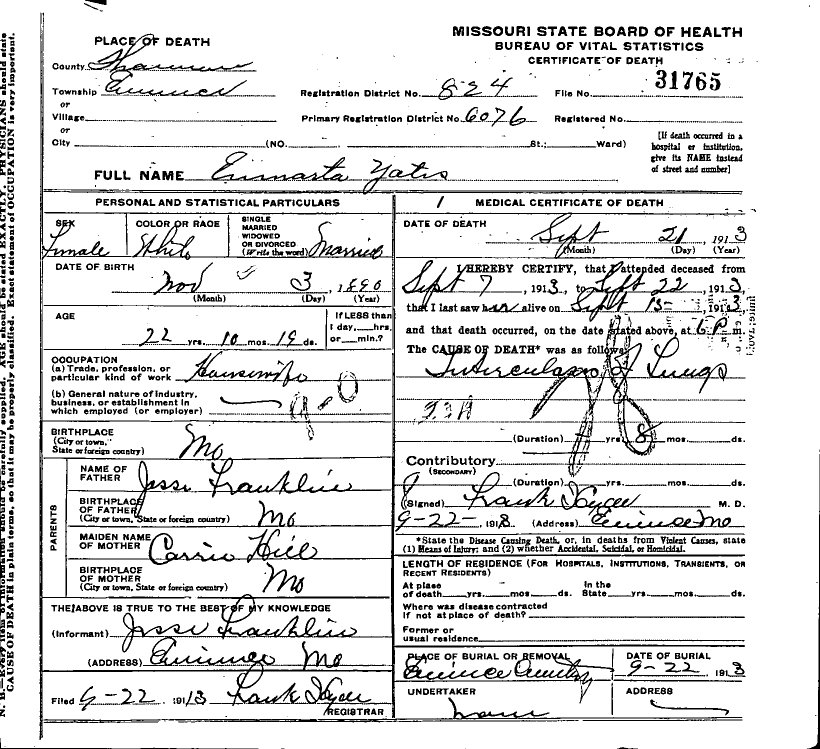 MISSOURI STATE BOARD OF HEALTH
BUREAU OF VITAL STATISTICS
CERTIFICATE OF DEATH
PLACE OF DEATH
County Shannon
Township Eminence
or
Village
or
City (NO. St.; Ward)
Registration District No. 824 File No. 31765
Primary Registration District No. 6076 Registered No.
[If death occurred in a
hospital or institution,
give its NAME instead
of street and number]
FULL NAME Yates
PERSONAL AND STATISTICAL PARTICULARS
SEX
Female
COLOR OR RACE
White
SINGLE
MARRIED
WIDOWED
OR DIVORCED
(Write the word) Married
DATE OF BIRTH
Nov 3, 1890
(Month) (Day) (Year)
AGE
22 yrs. 10 mos. 19 ds.
If LESS than
1 day, hrs.
or min.?
OCCUPATION
(a) Trade, profession, or
particular kind of work Housewife
(b) General nature of industry,
business, or establishment in
which employed (or employer)
9-0
BIRTHPLACE
(City or town,
State or foreign country) Mo
PARENTS
NAME OF
FATHER Jesse Franklin
BIRTHPLACE
OF FATHER
(City or town, State or foreign country) Mo
MAIDEN NAME
OF MOTHER Carrie Hill
BIRTHPLACE
OF MOTHER
(City or town, State or foreign country) Mo
THE ABOVE IS TRUE TO THE BEST OF MY KNOWLEDGE
(Informant) Jesse Franklin
(ADDRESS) Eminence Mo
Filed 9-22 1913 Frank Hyde
REGISTRAR
MEDICAL CERTIFICATE OF DEATH
DATE OF DEATH
Sept 21, 1913
(Month) (Day) (Year)
I HEREBY CERTIFY, that I attended deceased from
Sept 7, 1913, to Sept 22, 1913,
that I last saw her alive on Sept 15, 1913,
and that death occurred, on the date stated above, at 6 P m.
The CAUSE OF DEATH* was as follows:
Tuberculosis of Lungs
(Duration) yrs. 8 mos. ds.
Contributory
(SECONDARY)
(Duration) yrs. mos. ds.
(Signed) Frank Hyde M. D.
9-22-, 1913 (Address) Eminence Mo
*State the Disease Causing Death, or, in deaths from Violent Causes, state
(1) Means of Injury; and (2) whether Accidental, Suicidal, or Homicidal.
LENGTH OF RESIDENCE (FOR HOSPITALS, INSTITUTIONS, TRANSIENTS, OR
RECENT RESIDENTS)
At place
of death yrs. mos. ds.
In the
State yrs. mos. ds.
Where was disease contracted
if not at place of death?
Former or
usual residence
PLACE OF BURIAL OR REMOVAL
Eminence Cemetery
DATE OF BURIAL
9-22, 1913
UNDERTAKER
none
ADDRESS
CAUSE OF DEATH in plain terms, so that it may be properly classified. Exact statement of OCCUPATION is very important.